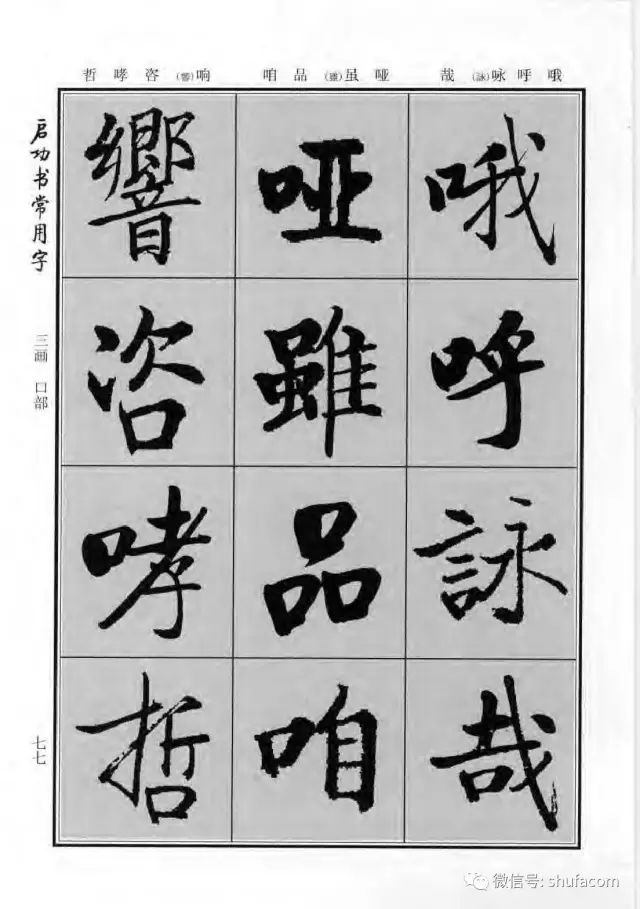 哦呼咏(詠)哉 哑虽(雖)品咱 响(響)咨哮哲
哦呼詠哉
哑雖品咱
響咨哮哲
启功书常用字
三画 口部
七七
微信号: shufacom